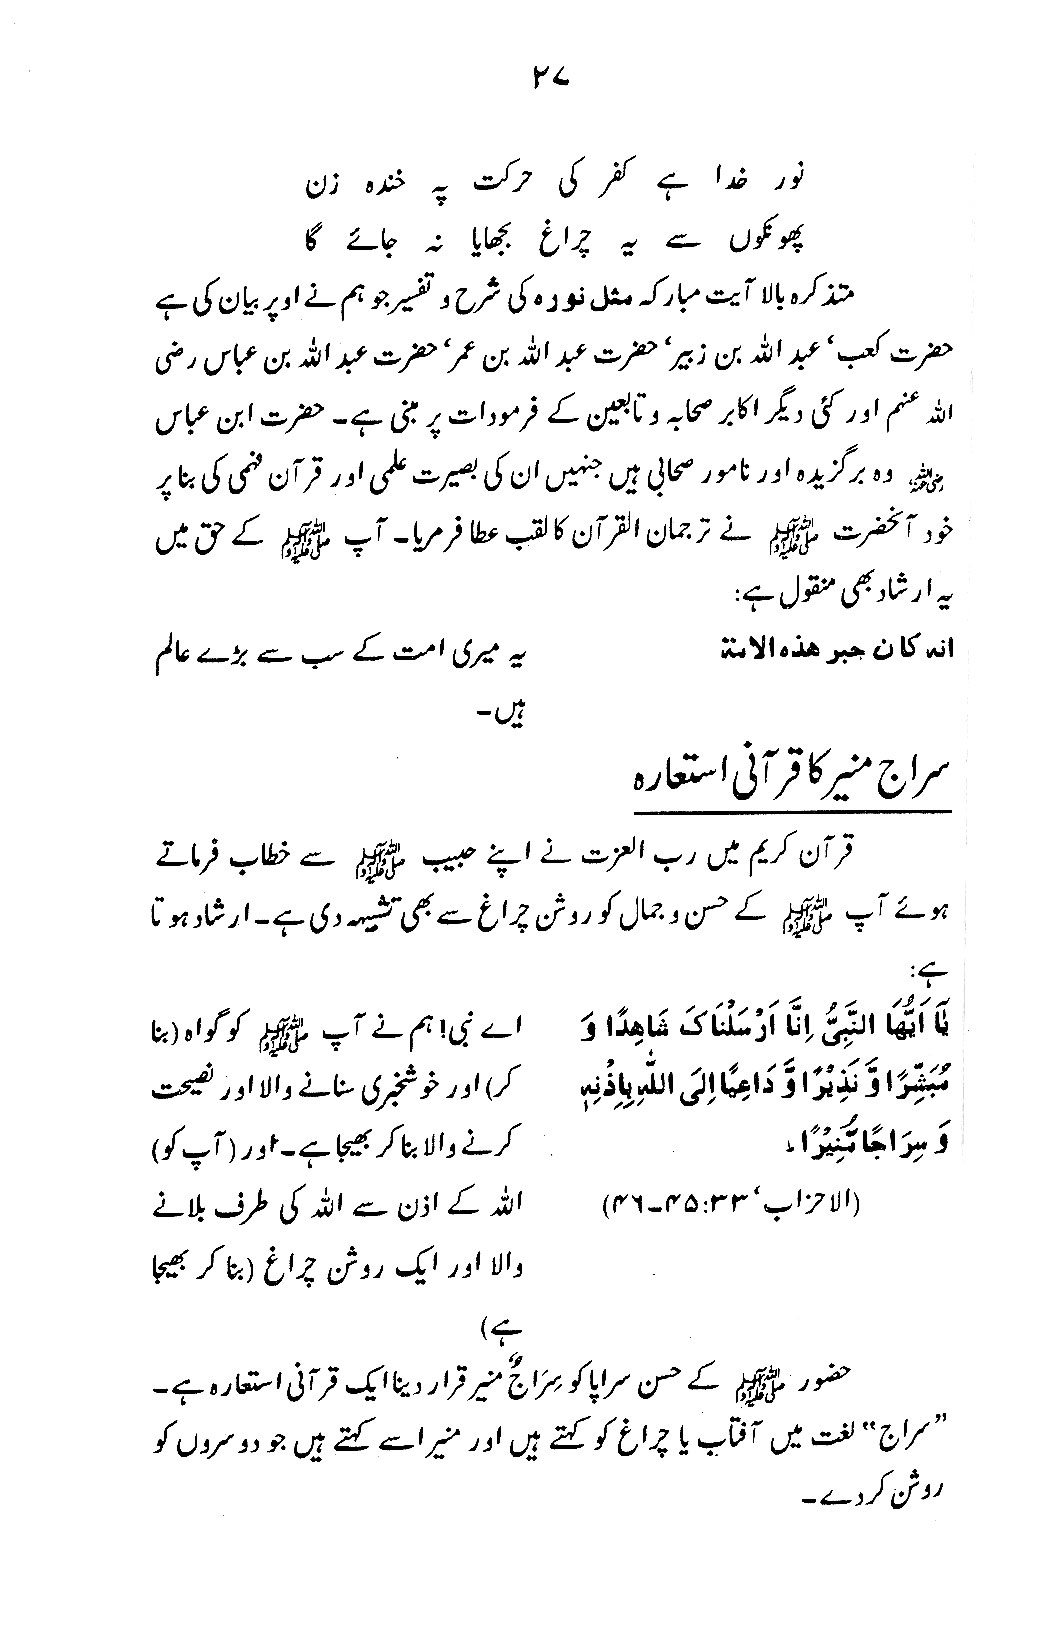 ۲۷
نور خدا ہے کفر کی حرکت پہ خندہ زن
پھونکوں سے یہ چراغ بجھایا نہ جائے گا
متذکرہ بالا آیت مبارکہ مثل نورہ کی شرح و تفسیر جو ہم نے اوپر بیان کی ہے
حضرت کعب‘ عبد اللہ بن زبیر‘ حضرت عبد اللہ بن عمر‘ حضرت عبد اللہ بن عباس رضی
اللہ عنہم اور کئی دیگر اکابر صحابہ و تابعین کے فرمودات پر مبنی ہے۔ حضرت ابن عباس
رضی اللہ عنہ وہ برگزیدہ اور نامور صحابی ہیں جنہیں ان کی بصیرت علمی اور قرآن فہمی کی بنا پر
خود آنحضرت ﷺ نے ترجمان القرآن کا لقب عطا فرمایا۔ آپ ﷺ کے حق میں
یہ ارشاد بھی منقول ہے:
انہ کان حبر ھذہ الامتہ
یہ میری امت کے سب سے بڑے عالم
ہیں۔
سراج منیر کا قرآنی استعارہ
قرآن کریم میں رب العزت نے اپنے حبیب ﷺ سے خطاب فرماتے
ہوئے آپ ﷺ کے حسن و جمال کو روشن چراغ سے بھی تشبیہہ دی ہے۔ ارشاد ہوتا
ہے:
يَآ اَيُّهَا النَّبِيُّ اِنَّا اَرْسَلْنَاكَ شَاهِدًا وَ
مُبَشِّرًا وَّ نَذِيْرًا وَّ دَاعِيًا اِلَى اللّٰهِ بِاِذْنِهٖ
وَ سِرَاجًا مُّنِيْرًا۔
(الاحزاب‘ ۳۳:۴۵۔۴۶)
اے نبی! ہم نے آپ ﷺ کو گواہ (بنا
کر) اور خوشخبری سنانے والا اور نصیحت
کرنے والا بنا کر بھیجا ہے۔ اور (آپ کو)
اللہ کے اذن سے اللہ کی طرف بلانے
والا اور ایک روشن چراغ (بنا کر بھیجا
ہے)
حضور ﷺ کے حسن سراپا کو سِرَاجٌ منیر قرار دینا ایک قرآنی استعارہ ہے۔
”سراج“ لغت میں آفتاب یا چراغ کو کہتے ہیں اور منیر اسے کہتے ہیں جو دوسروں کو
روشن کر دے۔